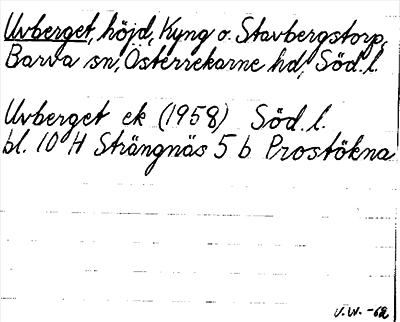 Uvberget, höjd, Kyng o. Stavbergstorp,
Barva sn, Österrekarne hd, Söd. l.
Uvberget ek (1958) Söd. l.
bl. 10 H Strängnäs 5 b Prostökna
V.W. -62